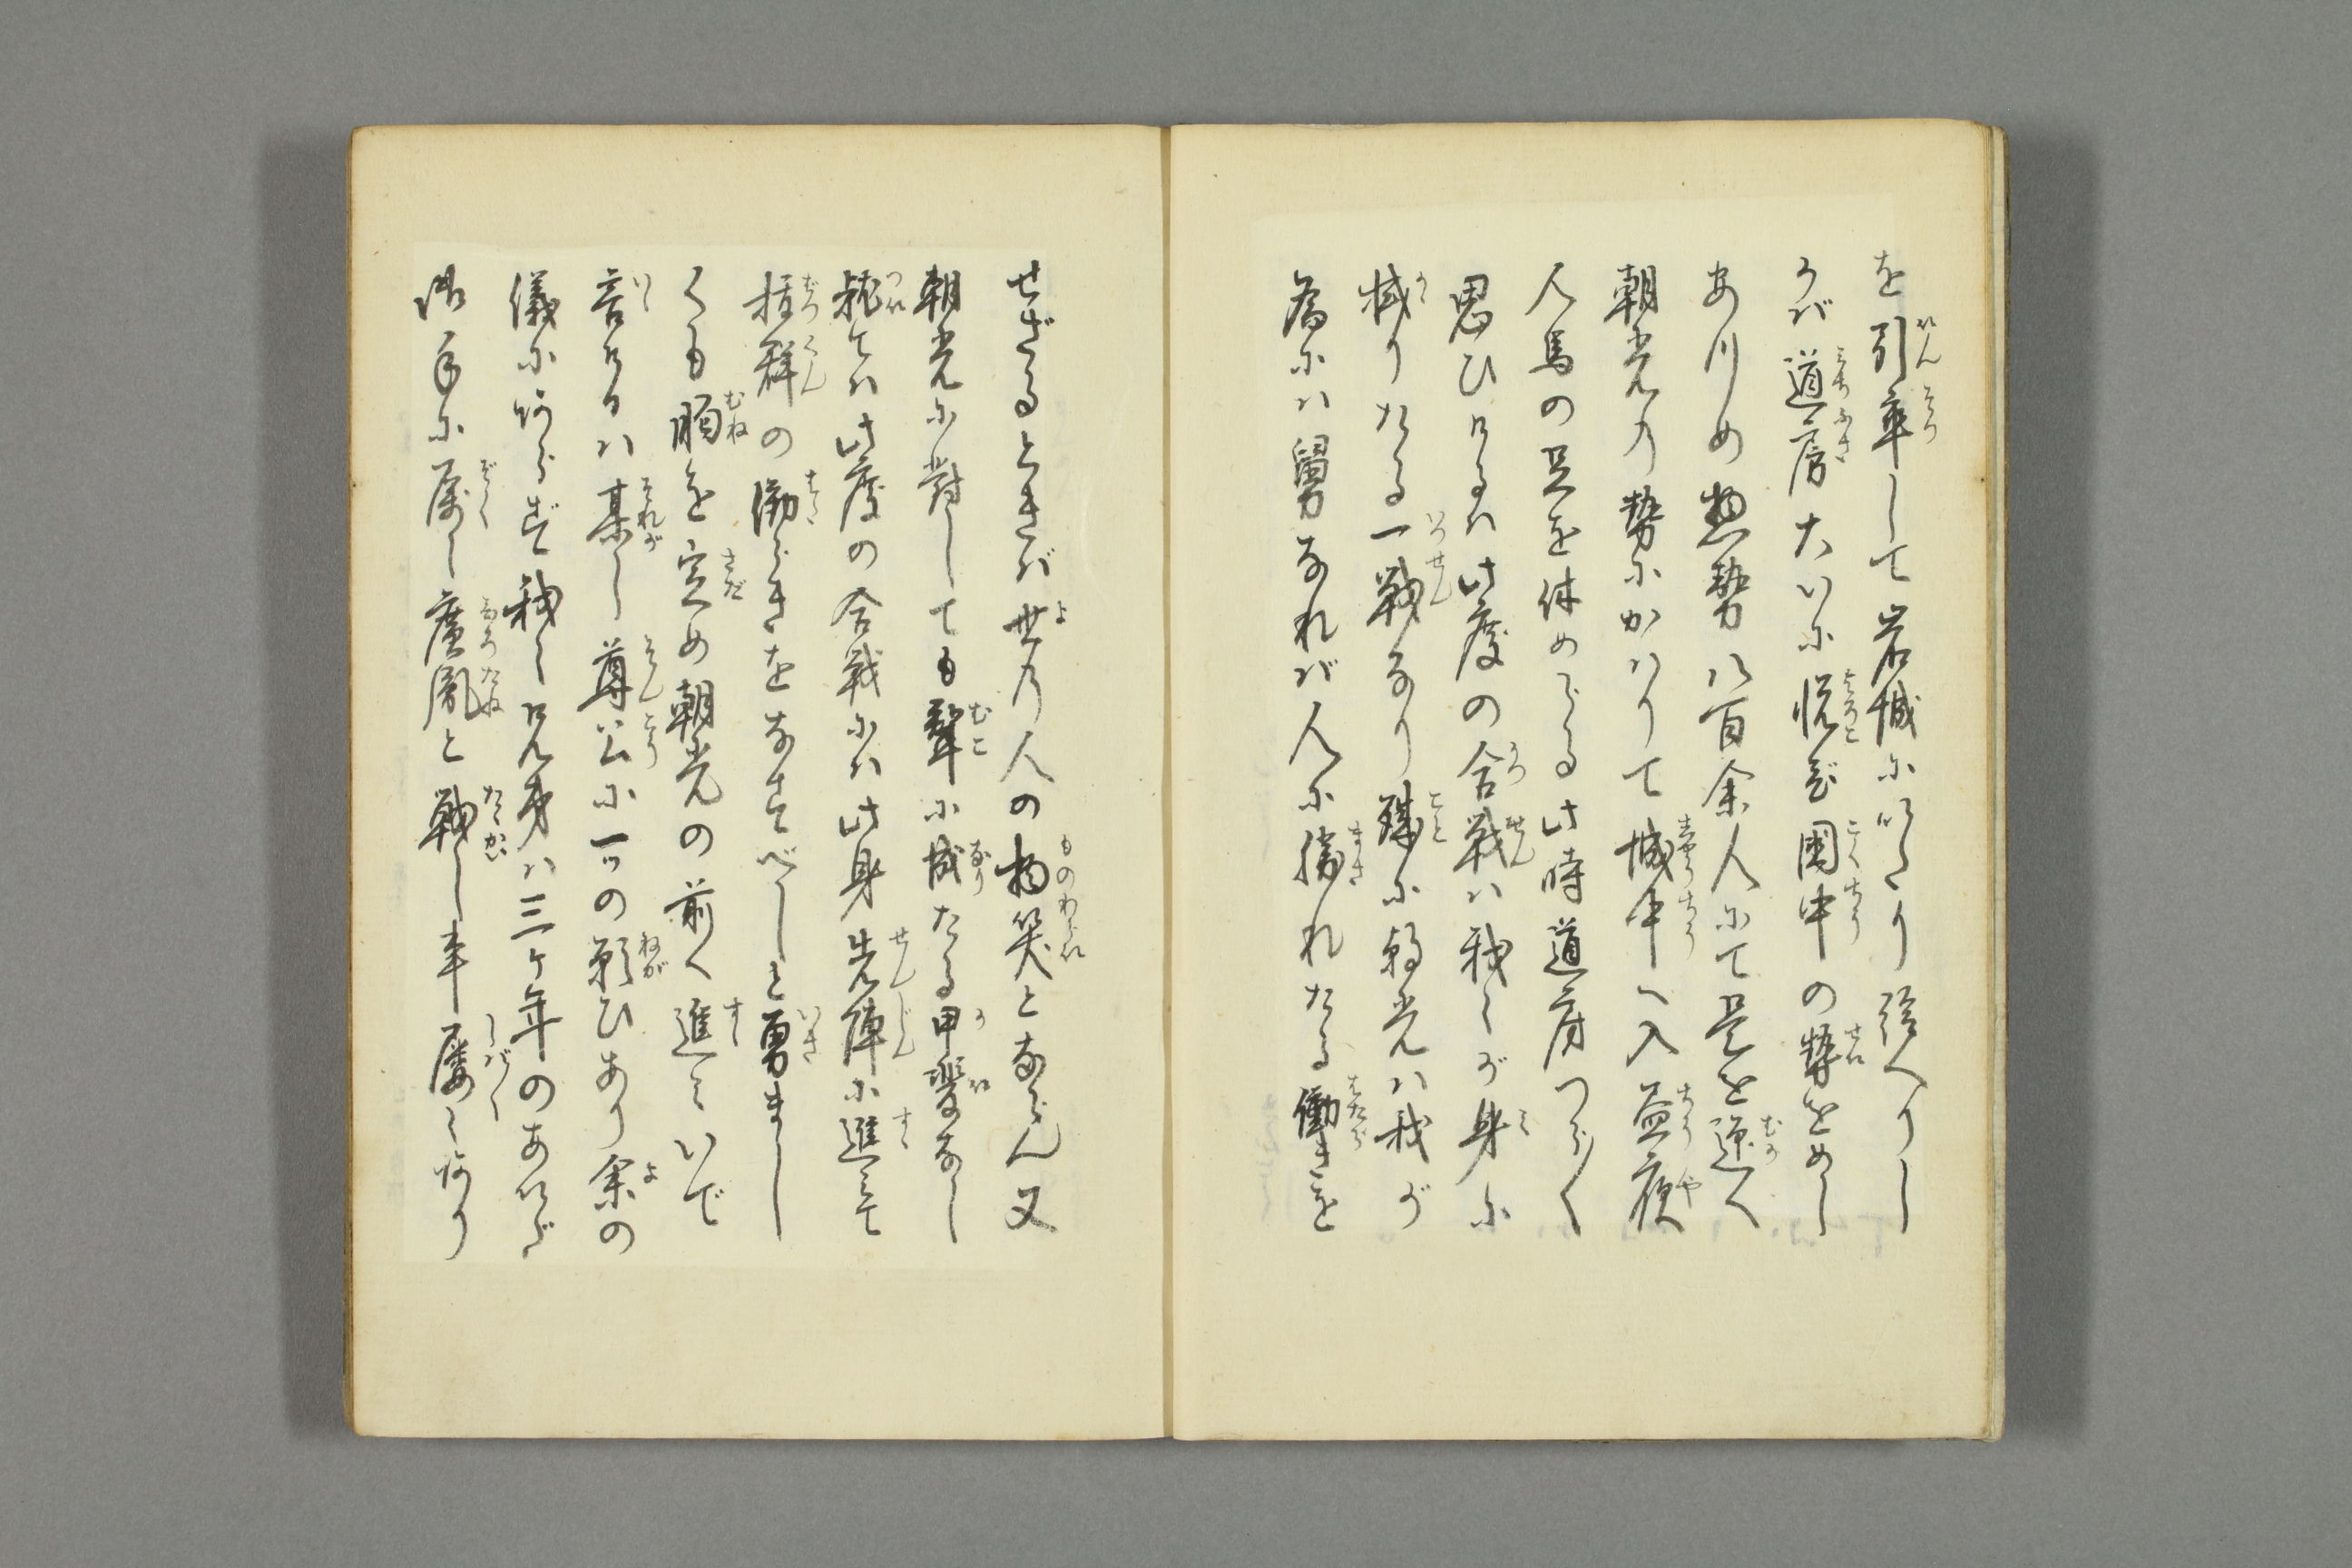 を引率して岩城にいたり控へりし
うバ道房大いに悦び国中の勢をめし
あつめ惣勢八百余人にて是を迎へ
朝光の勢にかハりて城中へ入益夜
人馬の足を休めでる此時道房つら〳〵
思ひけるハ此度の合戦ハ我々が身に
掛りたる一戦なり殊に朝光ハ我が
為にハ舅なれバ人に勝れたる働きを
せざるときバ世の人の物笑とならん又
朝光に対しても聟に成たる甲斐なし
然らハ此度の合戦にハ此身先陣に進ミて
抜群の働らきをなすべしと勇ましく
くも胸を定め朝光の前へ進ミいで
言けるハ某し尊公に一ツの願ひあり余の
儀にあらず我々兄弟ハ三ケ年のあいだ
御手に属し広胤と戦し事屡々あり